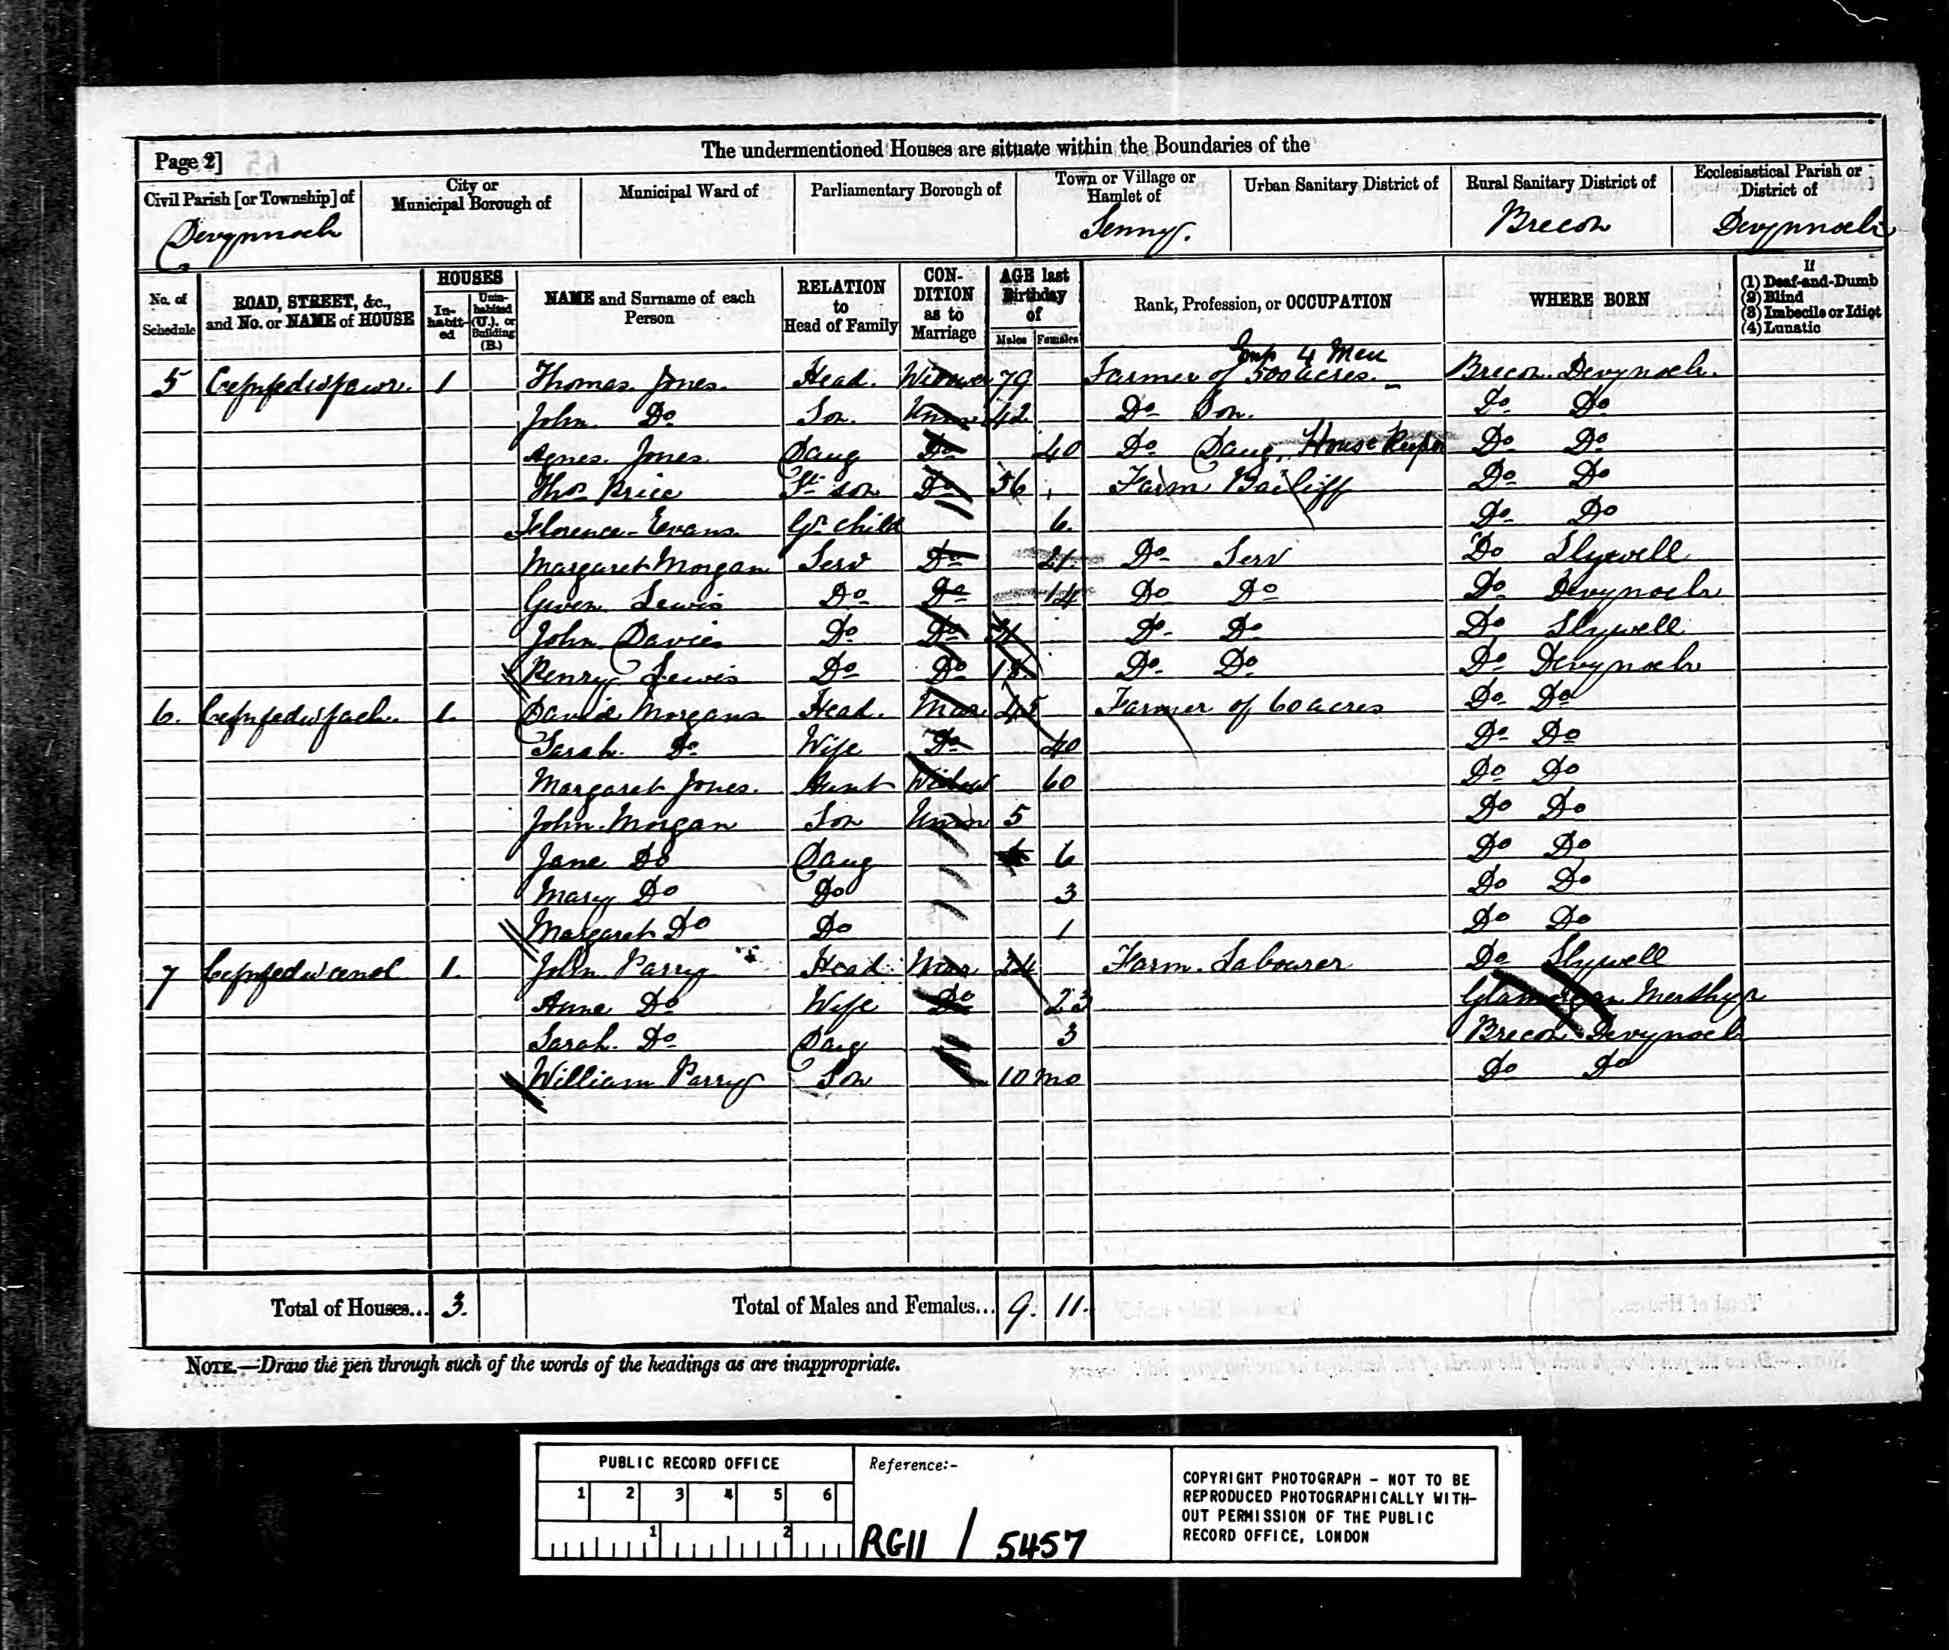 Page 2]
The undermentioned Houses are situate within the Boundaries of the
Civil Parish [or Township] of
Devynnock
City or Municipal Borough of
Municipal Ward of
Parliamentary Borough of
Town or Village or Hamlet of
Senny.
Urban Sanitary District of
Rural Sanitary District of
Brecon
Ecclesiastical Parish or District of
Devynnock
No. of Schedule
ROAD, STREET, &c., and No. or NAME of HOUSE
HOUSES
In-habit-ed
Unin-habited (U.), or Building (B.)
NAME and Surname of each Person
RELATION to Head of Family
CON-DITION as to Marriage
AGE last Birthday of
Males Females
Rank, Profession, or OCCUPATION
WHERE BORN
If
(1) Deaf-and-Dumb
(2) Blind
(3) Imbecile or Idiot
(4) Lunatic
Emp 4 Men
5 1 Thomas Jones. Head. Widower 79 Farmer of 500 acres. Brecon Devynock.
John Do Son. Unm 42 Do Son. Do Do
Agnes Jones Daug Do 40 Do Daug. House Keeper Do Do
Thos Price St son Do 56 Farm Bailiff Do Do
Florence Evans Gr child 6 Do Do
Margaret Morgan Serv Do 21 Do Serv Do Llywell
Gwen Lewis Do Do 14 Do Do Do Devynock
John Davies Do Do Do Do Do Llywell
Henry Lewis Do Do 18 Do Do Do Devynock
6. 1. David Morgans Head. Mar 45 Farmer of 60 acres Do Do
Sarah Do Wife Do 40 Do Do
Margaret Jones. Aunt Widow 60 Do Do
John Morgan Son Unm 5 Do Do
Jane Do Daug 6 Do Do
Mary Do Do 3 Do Do
Margaret Do Do 1 Do Do
7 1. John Parry Head Mar 24 Farm Labourer Do Llywell
Anne Do Wife Do 23 Glamorgan Merthyr
Sarah Do Daug 3 Brecon Devynock
William Parry Son 10 mo Do Do
Total of Houses... 3. Total of Males and Females... 9. 11.
NOTE.—Draw the pen through such of the words of the headings as are inappropriate.
PUBLIC RECORD OFFICE
1 2 3 4 5 6
1 2
Reference:-
RG11 / 5457
COPYRIGHT PHOTOGRAPH - NOT TO BE
REPRODUCED PHOTOGRAPHICALLY WITH-
OUT PERMISSION OF THE PUBLIC
RECORD OFFICE, LONDON